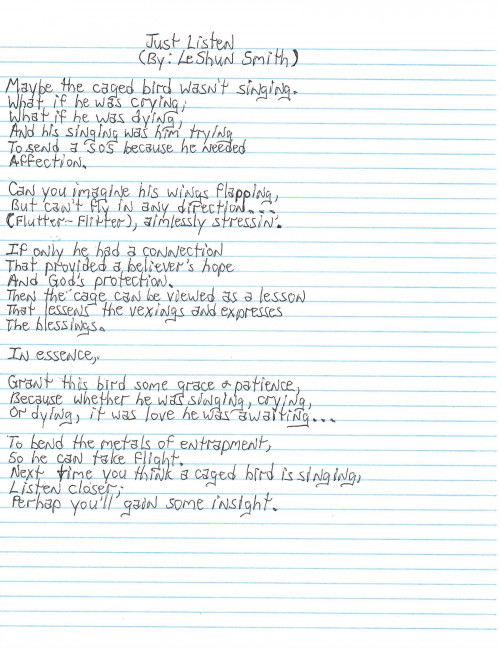 Just Listen
(By: LeShun Smith)
Maybe the caged bird wasn't singing.
What if he was crying;
What if he was dying,
And his singing was him trying
To send a SOS because he needed
Affection.
Can you imagine his wings flapping,
But can't fly in any direction....
(Flutter-Flitter), aimlessly stressin'.
If only he had a connection
That provided a believer's hope
And God's protection.
Then the cage can be viewed as a lesson
That lessens the vexings and expresses
The blessings.
In essence,
Grant this bird some grace & patience,
Because whether he was singing, crying,
Or dying, it was love he was awaiting...
To bend the metals of entrapment,
So he can take flight.
Next time you think a caged bird is singing,
Listen closer;
Perhap you'll gain some insight.